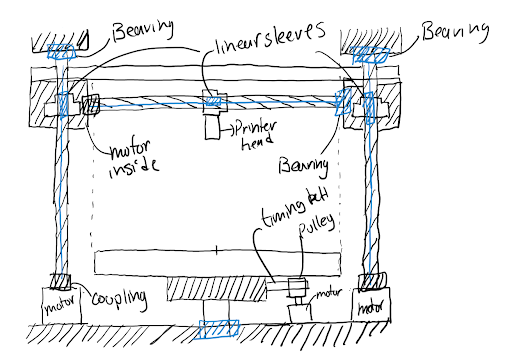 Bearing
linear sleeves
Bearing
motor
inside
Printer
head
Bearing
timing belt
pulley
motor
coupling
motor
motor